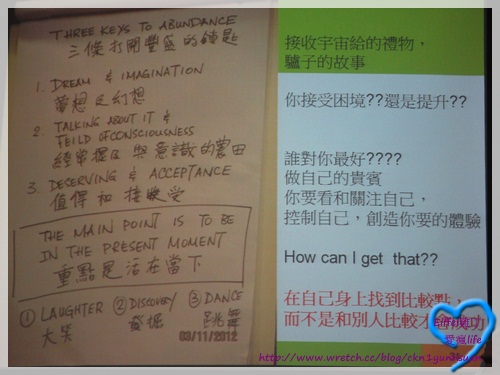 THREE KEYS TO ABUNDANCE
三條打開豐盛的鑰匙
1. DREAM & IMAGINATION
夢想及幻想
2. TALKING ABOUT IT &
FEILD OF CONSCIOUSNESS
經常提及 與意識的農田
3. DESERVING & ACCEPTANCE
值得和 接受
THE MAIN POINT IS TO BE
IN THE PRESENT MOMENT
重點是活在當下
① LAUGHTER ② DISCOVERY ③ DANCE
大笑 發掘 跳舞
03/11/2012
接收宇宙給的禮物，
驢子的故事
你接受困境??還是提升??
誰對你最好????
做自己的貴賓
你要看和關注自己，
控制自己，創造你要的體驗
How can I get that??
在自己身上找到比較點，
而不是和別人比較才 成功
愛瘋life
http://www.wretch.cc/blog/ckn1yun